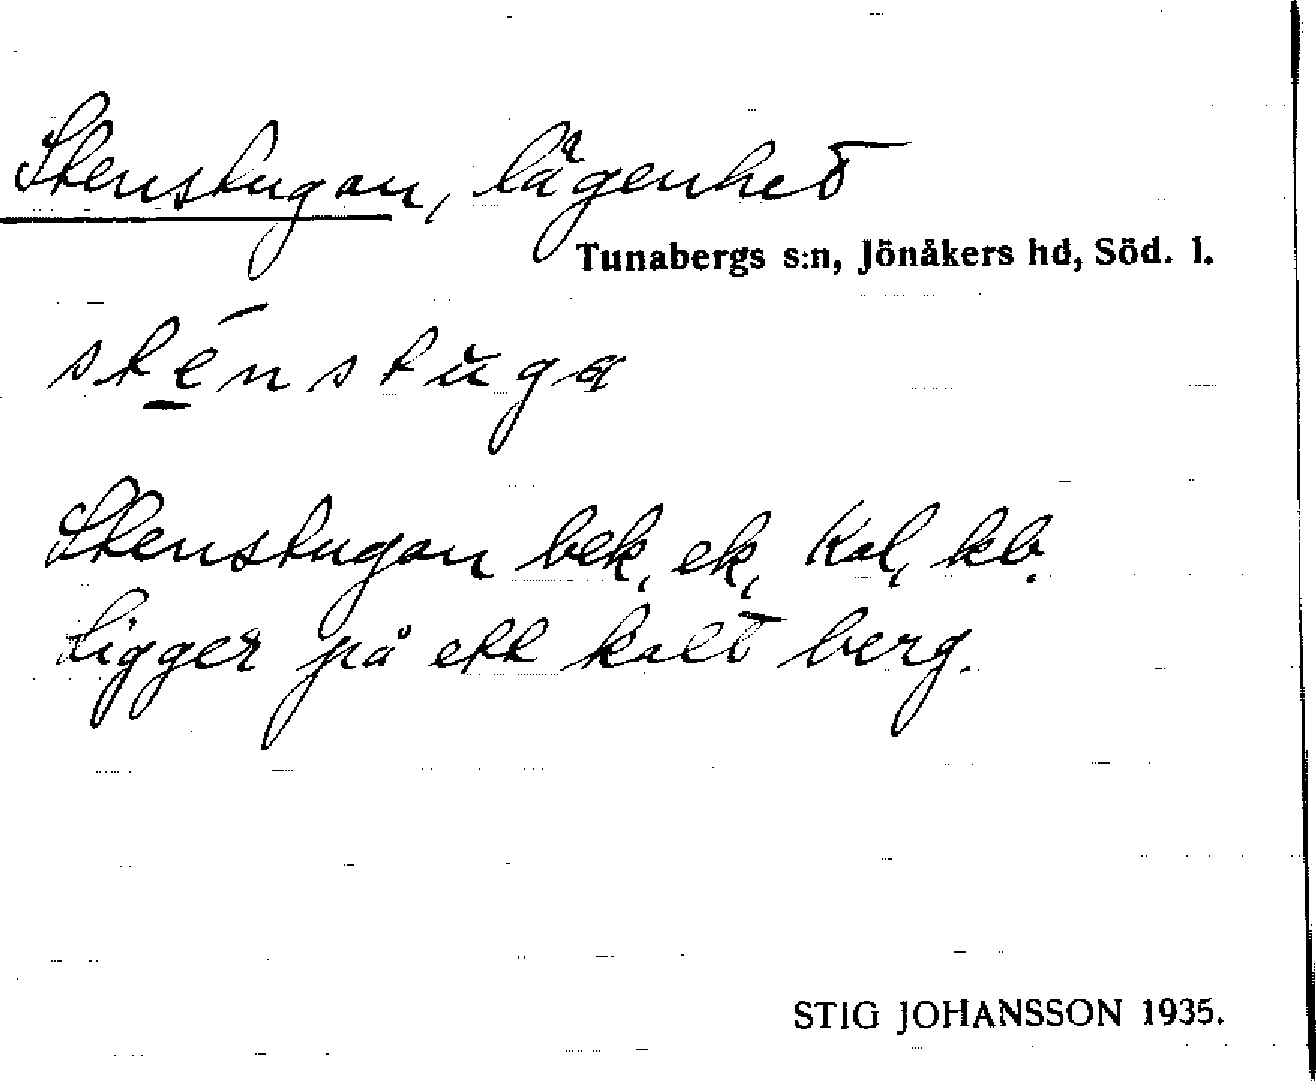 Stenstugan, lägenhet
Tunabergs s:n, Jönåkers hd, Söd. l.
sténstùga
Stenstugan bek, ek, Kal, kb.
Ligger på ett kalt berg.
STIG JOHANSSON 1935.